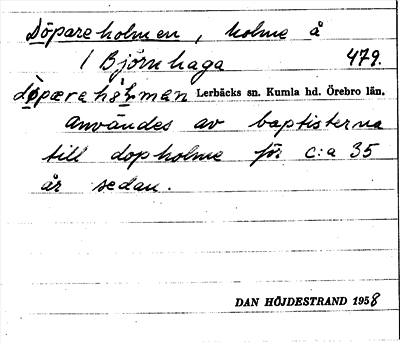 Döpareholmen, holme å
1 Björnhaga 479.
dö̀parahɷlmen Lerbäcks sn. Kumla hd. Örebro län.
användes av baptisterna
till dopholme för c:a 35
år sedan.
DAN HÖJDESTRAND 1958